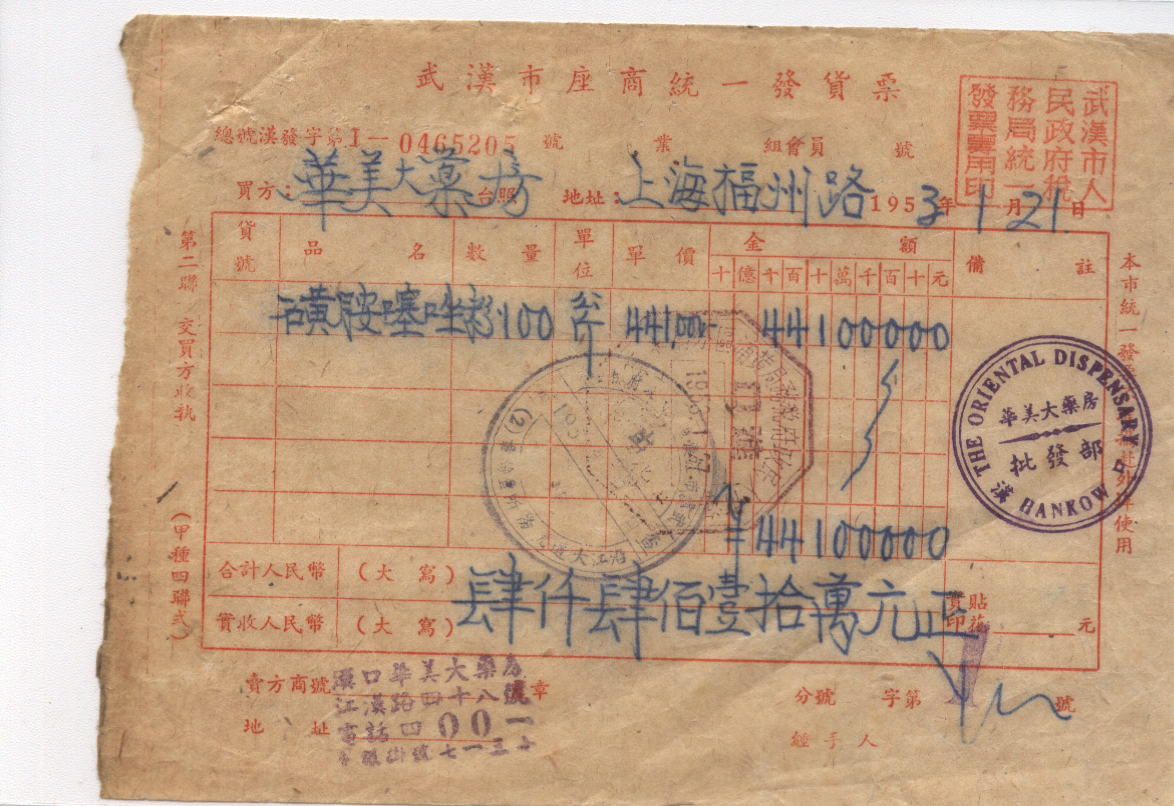 武漢市座商統一發貨票
武漢市人民政府稅務局統一發票專用印
總號漢發字第1—0465205 號 業 組會員 號
買方：華美大藥房 台照 地址：上海福州路 1953年1月21日
貨號 品名 數量 單位 單價 金額 備註
十億千百十萬千百十元
磺胺噻唑粉 100 斤 441,00 44100000
¥44100000
合計人民幣 (大寫) 肆仟肆佰壹拾萬元正
實收人民幣 (大寫)
實貼印花 元
賣方商號 漢口華美大藥房 章
江漢路四十八號
地址
電話四001
分號 字第 號
經手人
第二聯 交買方收執
(甲種四聯式)
本市統一發 使用
THE ORIENTAL DISPENSARY
華美大藥房
批發部
漢 HANKOW 口